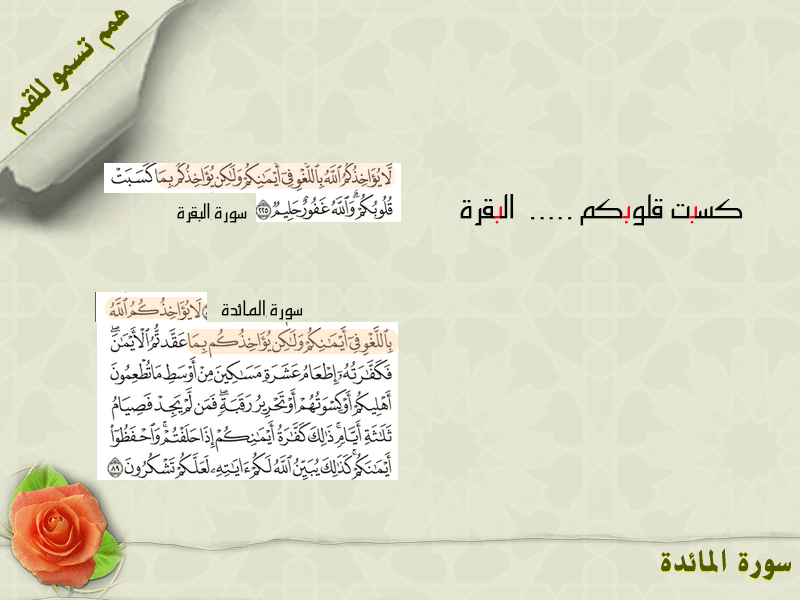 همم تسمو للقمم
لَّا يُؤَاخِذُكُمُ ٱللَّهُ بِٱللَّغْوِ فِىٓ أَيْمَٰنِكُمْ وَلَٰكِن يُؤَاخِذُكُم بِمَا كَسَبَتْ
قُلُوبُكُمْ ۗ وَٱللَّهُ غَفُورٌ حَلِيمٌ ٢٢٥
سورة البقرة
كسبت قلوبكم ..... البقرة
لَا يُؤَاخِذُكُمُ ٱللَّهُ
سورة المائدة
بِٱللَّغْوِ فِىٓ أَيْمَٰنِكُمْ وَلَٰكِن يُؤَاخِذُكُم بِمَا عَقَّدتُّمُ ٱلْأَيْمَٰنَ ۖ
فَكَفَّٰرَتُهُۥٓ إِطْعَامُ عَشَرَةِ مَسَٰكِينَ مِنْ أَوْسَطِ مَا تُطْعِمُونَ
أَهْلِيكُمْ أَوْ كِسْوَتُهُمْ أَوْ تَحْرِيرُ رَقَبَةٍ ۖ فَمَن لَّمْ يَجِدْ فَصِيَامُ
ثَلَٰثَةِ أَيَّامٍ ۚ ذَٰلِكَ كَفَّٰرَةُ أَيْمَٰنِكُمْ إِذَا حَلَفْتُمْ ۚ وَٱحْفَظُوٓا۟
أَيْمَٰنَكُمْ ۚ كَذَٰلِكَ يُبَيِّنُ ٱللَّهُ لَكُمْ ءَايَٰتِهِۦ لَعَلَّكُمْ تَشْكُرُونَ ٨٩
سورة المائدة